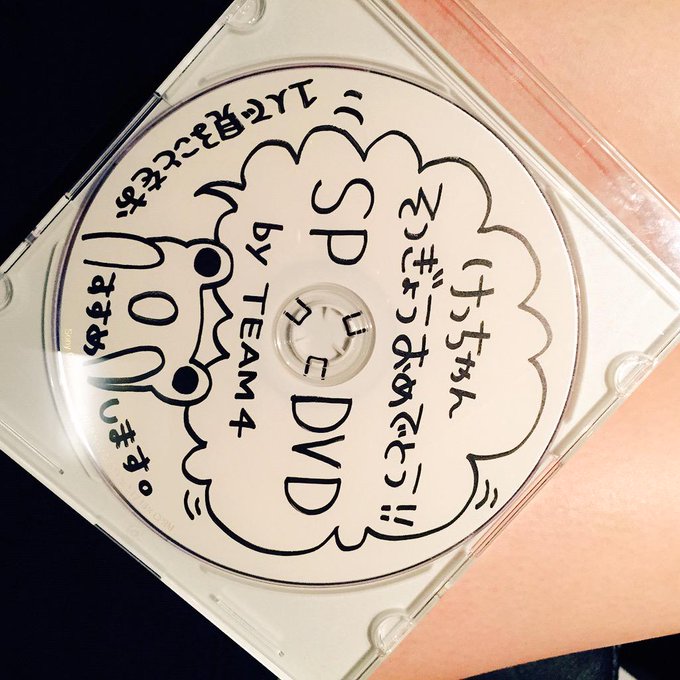 けっちゃん
そつぎょうおめでとう!!
SP DVD
by TEAM 4
1人で見ることをおすすめします。